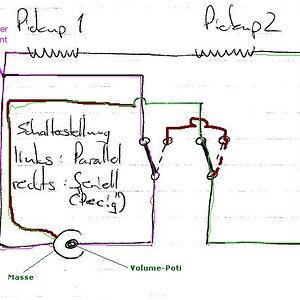 Pickup 1
Pickup 2
er
nt
Schalterstellung
links : Parallel
rechts : Seriell
("Decig")
Masse
Volume-Poti